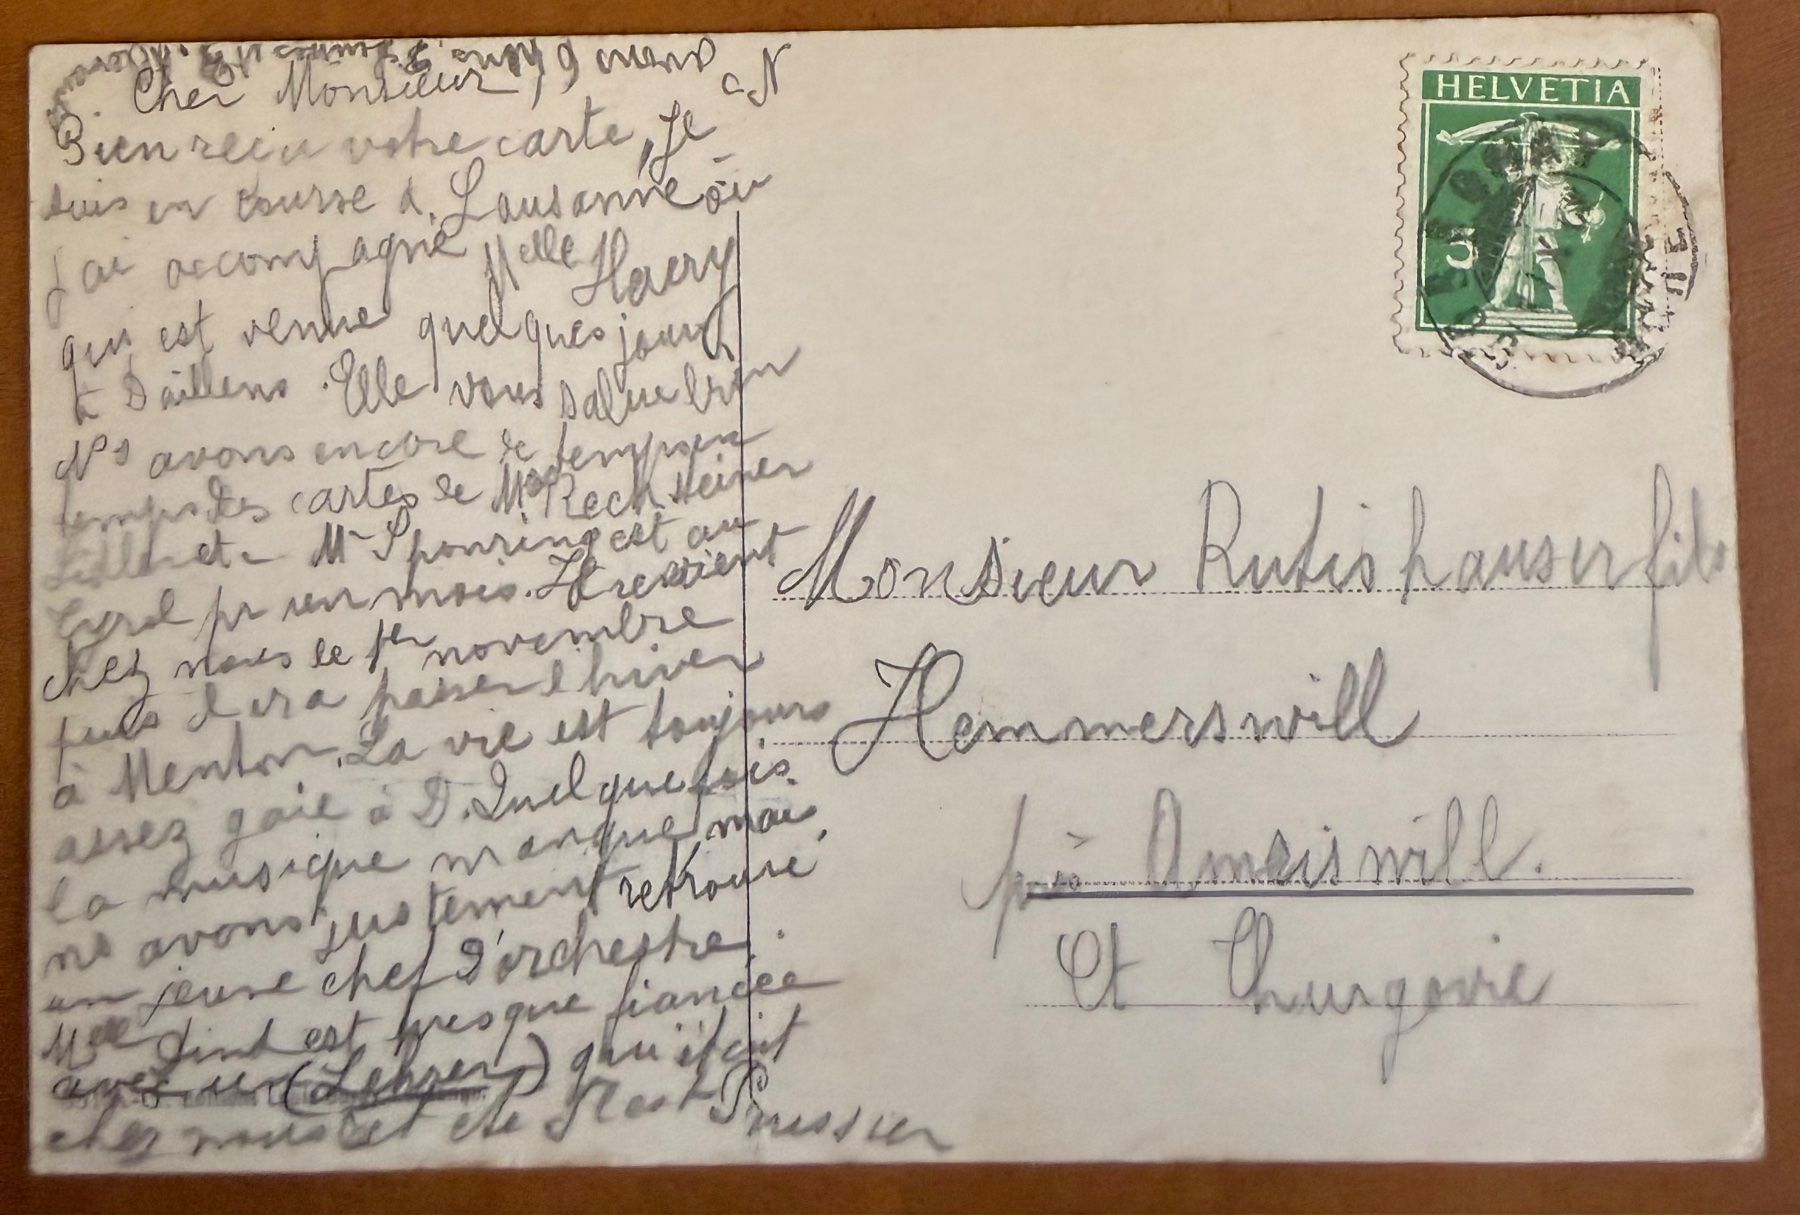 Cher Monsieur,
Bien reçu votre carte, Je
suis en course à Lausanne où
j'ai accompagné Melle Haery
qui est venue quelques jours
à Daillens. Elle vous salue bien
Ns avons encore de temps en
temps des cartes de Mr Rechsteiner
et Mr Sponring est au
Tyrol pr un mois. Il revient
chez nous le 1er novembre
puis il ira passer l'hiver
à Menton. La vie est toujours
assez gaie à D. Quelquefois
la musique manque mais
ns avons justement retrouvé
un jeune chef d'orchestre.
Melle est presque fiancée
avec un (Lehrer) qui était
chez nous cet été. Il est Prussien
HELVETIA
5
Monsieur Rutishauser fils
Hemmerswill
près Amriswill.
Ct Thurgovie